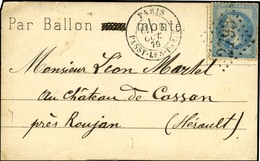 Par Ballon
PARIS
PASSY-LES-PARIS
Monsieur Léon Martel
au Château de Cassan
près Roujan
(Hérault)